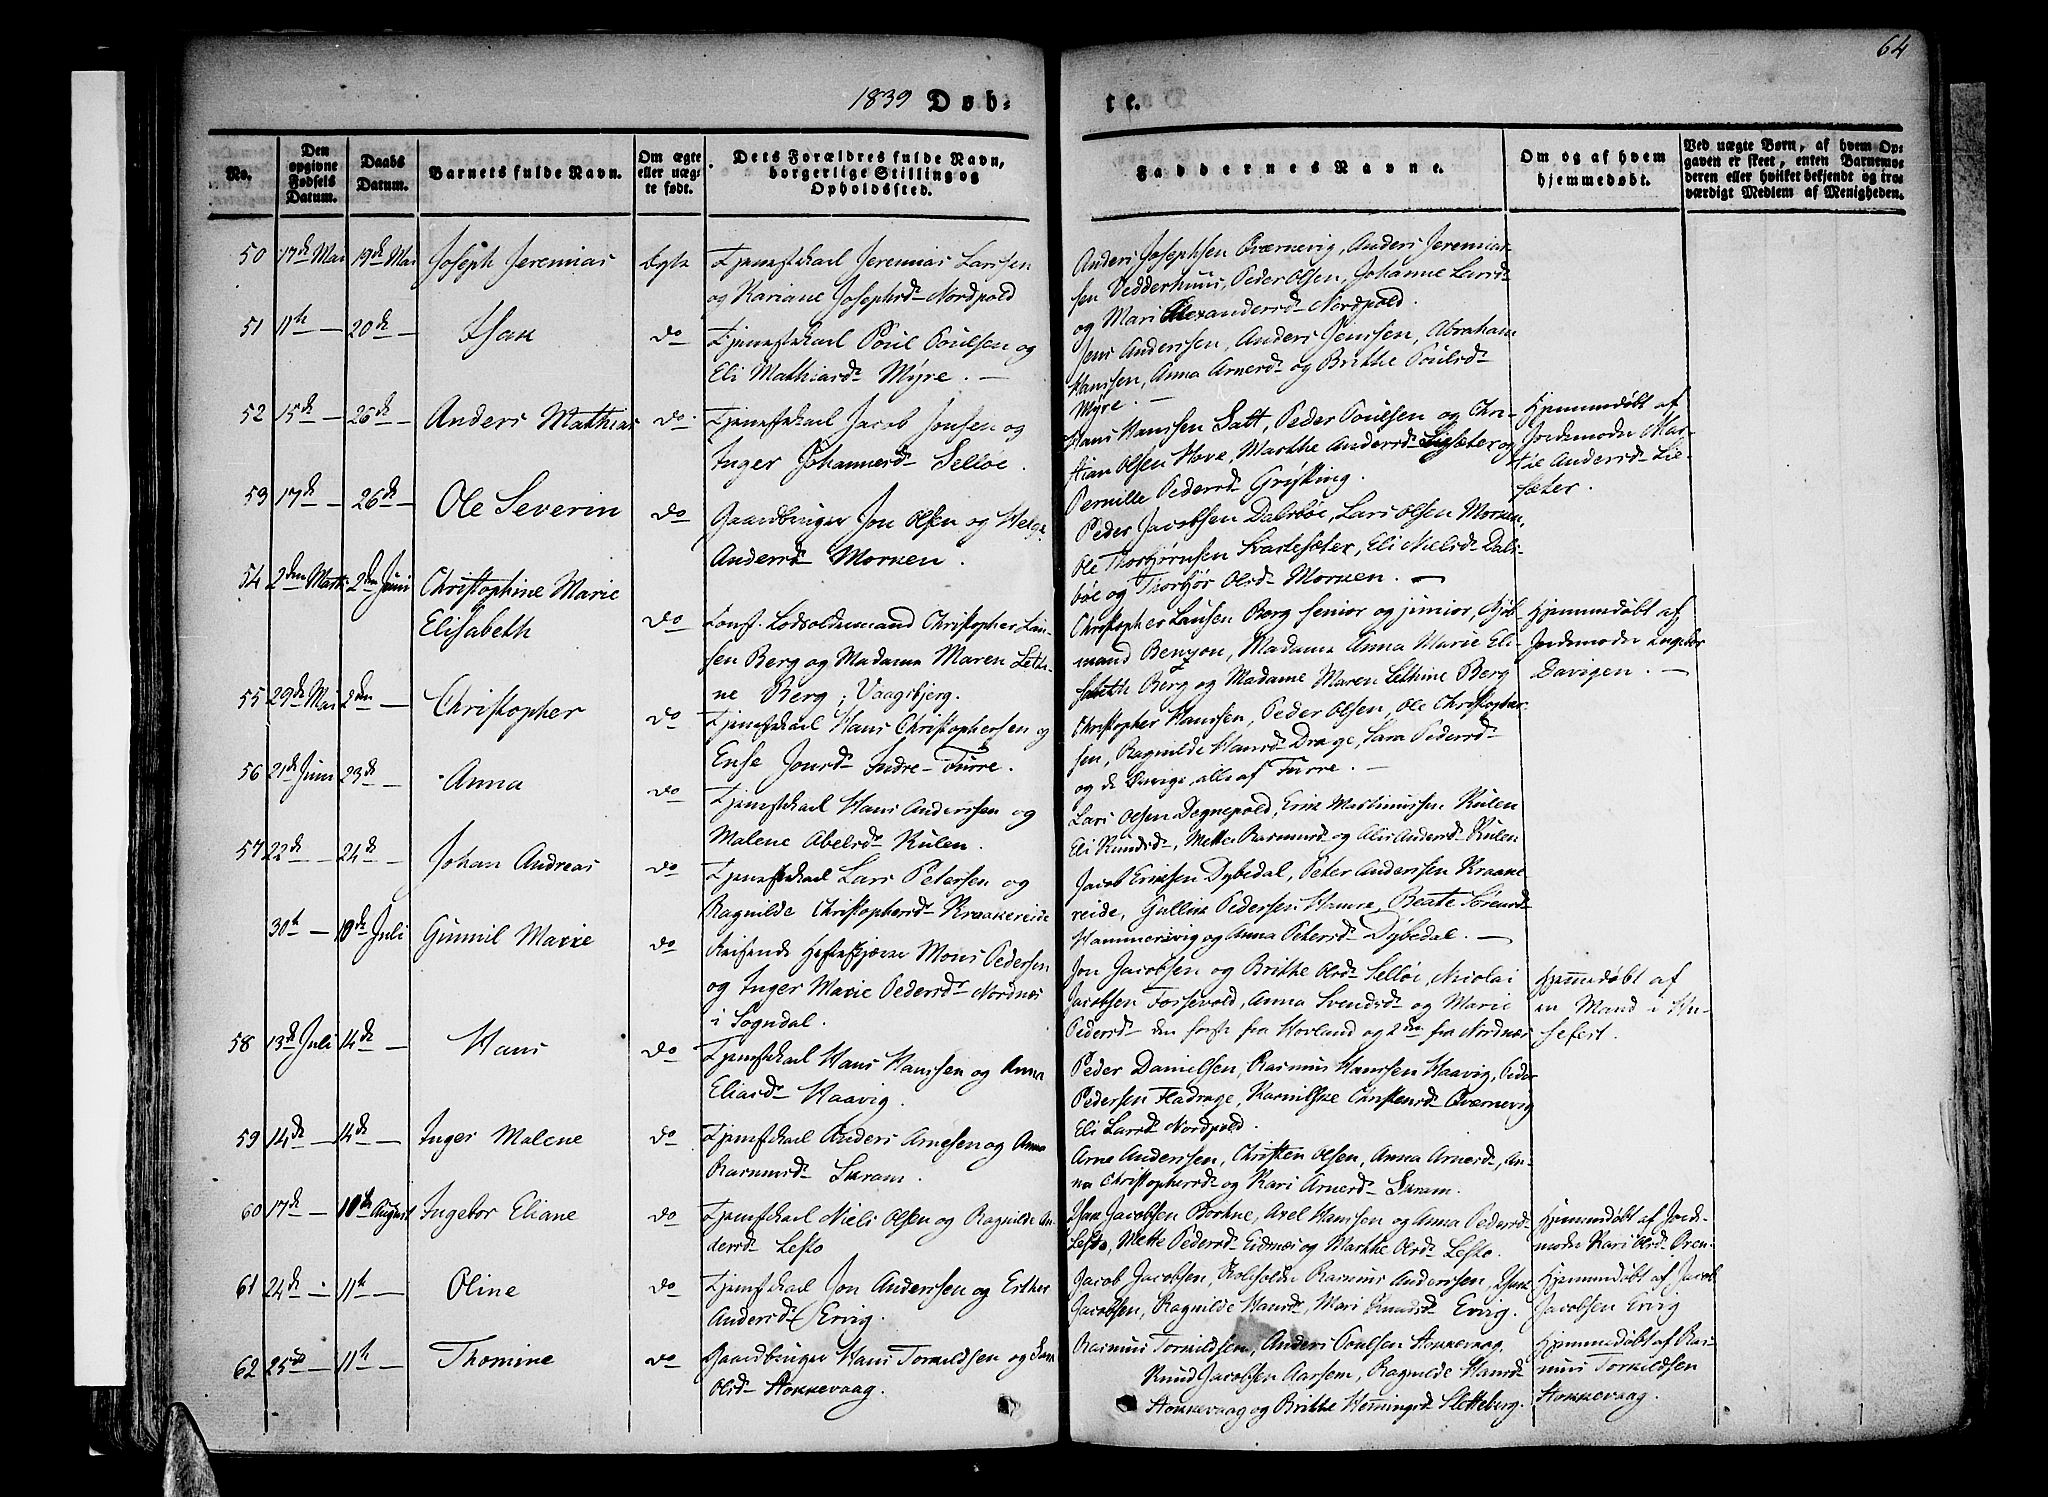 64
1839 Døb-
te.
No.
Den opgivne Fødsels Datum.
Daabs Datum.
Barnets fulde Navn.
Om ægte eller uægte født.
Dets Forældres fulde Navn, borgerlige Stilling og Opholdssted.
Faddernes Navne.
Om og af hvem hjemmedøbt.
Ved uægte Børn, af hvem Opgaven er skeet, enten Barnemoderen eller hvilket bekjendt og troværdigt Medlem af Menigheden.
50 17de Mai 19de Mai Joseph Jeremias Ægte Tjenestekarl Jeremias Larssen
og Kariane Josephsd. Nordpold
Anders Josephsen Qværnevig, Anders Jeremias-
sen Vedderhuus, Peder Olsen, Johanne Larsd.
og Mari Alexandersd. Nordpold.
51 11te — 20de — Isak do Tjenestekarl Poul Poulsen og
Eli Mathiasd. Myre. —
Jens Anderssen, Anders Jenssen, Abraham
Hanssen, Anna Arnesd. og Brithe Poulsd.
Myre. —
52 15de — 26de — Anders Mathias do. Tjenestekarl Jacob Jonsen og
Inger Johannesd. Selløe.
Hans Hanssen Satt, Peder Poulsen og Chri-
stian Olsen Hove, Marthe Andersd. Liesæter og
Pernille Pedersd.
Hjemmedøbt af
Jordemoder Mar-
the Andersd. Lie-
sæter.
53 17de — 26de — Ole Severin do Gaardbruger Jon Olsen og Helge
Andersd. Morken.
Peder Jacobsen Dalsbøe, Lars Olsen Morken,
Ole Thorbjørnsen Svartesæter, Eli Nielsd. Dals-
bøe og Thorbjør Olsd. Morken. —
54 2den Marts 2den Juni Christophine Marie
Elisabeth do Const. Lodsoldermand Christopher Lau-
sen Berg og Madame Maren Leth-
ne Berg, Vaagsbjerg.
Christopher Lausen Berg senior og junior, Kjøb-
mand Benzon, Madame Anna Marie Eli-
sabeth Berg og Madame Maren Lethine Berg
Hjemmedøbt af
Jordemoder Ingebor
Davigen. —
55 29de Mai 2den — Christopher do Tjenestekarl Hans Christophersen og
Ense Jonsd. Indre-Furre.
Christopher Hanssen, Peder Olsen, Ole Christopher-
sen, Ragnilde Hansd. Drage, Sara Pedersd.
og de øvrige alle af Furre. —
56 21de Juni 23de Anna do Tjenestekarl Hans Anderssen og
Malene Abelsd. Kulen.
Lars Olsen Degnepold, Erik Martinussen Kulen
Eli Knudsd., Mette Rasmusd. og Alis Andersd. Kulen
57 22de — 24de — Johan Andreas do Tjenestekarl Lars Petersen og
Ragnilde Christophersd. Kraakereide
Jacob Eriksen Dybedal, Peter Andersen Kraake-
reide, Gullik Pedersen Hamre, Beate Sørensd.
Hammersvig og Anna Petersd. Dybedal. —
30te — 10de Juli Gunnil Marie do Reisende Mons Pedersen
og Inger Marie Pedersd. Nordnæs
i Sogndal.
Jon Jacobsen og Brithe Olsd. Selløe, Nicolai
Jacobsen Forsevold, Anna Svendsd. og Marie
Pedersd. den første fra Hovland og 2den fra Nordnæs
Hjemmedøbt af
en Mand i Hu-
sefest.
58 13de Juli 14de — Hans do Tjenestekarl Hans Hanssen og Anna
Eliasd. Haavig.
Peder Danielsen, Rasmus Hanssen Haavig, Peder
Pedersen Fladrage, Karnilske Christensd. Qværnevig
Eli Larsd. Nordpold.
59 14de — 14de — Inger Malene do Tjenestekarl Anders Arnesen og Anna
Rasmusd. Skram.
Arne Anderssen, Christen Olsen, Anna Arnesd., An-
na Christophersd. og Kari Arnesd. Skram.
60 17de — 10de August Ingebor Eliane do Tjenestekarl Niels Olsen og Ragnilde An-
dersd. Lesto
Isak Jacobsen Bortne, Axel Hanssen og Anna Pedersd.
Lesto, Mette Pedersd. Eidnæs og Marthe Olsd. Lesto.
Hjemmedøbt af Jorde-
moder Kari Olsd.
61 24de — 11te — Oline do Tjenestekarl Jon Anderssen og Esther
Andersd. Ervig.
Jacob Jacobsen, Rasmus Anderssen, Isak
Jacobsen, Ragnilde Hansd., Mari Knudsd. Ervig.
Hjemmedøbt af Jacob
Jacobsen Ervig
62 25de — 11te — Thomine do Gaardbruger Hans Torkildsen og
Olsd. Stokkevaag.
Rasmus Torkildsen, Anders Poulsen Stokkevaag
Knud Jacobsen Aarsem, Ragnilde Hansd.
Stokkevaag og Brithe Henningsd. Sletteberg.
Hjemmedøbt af Ras-
mus Torkildsen
Stokkevaag.